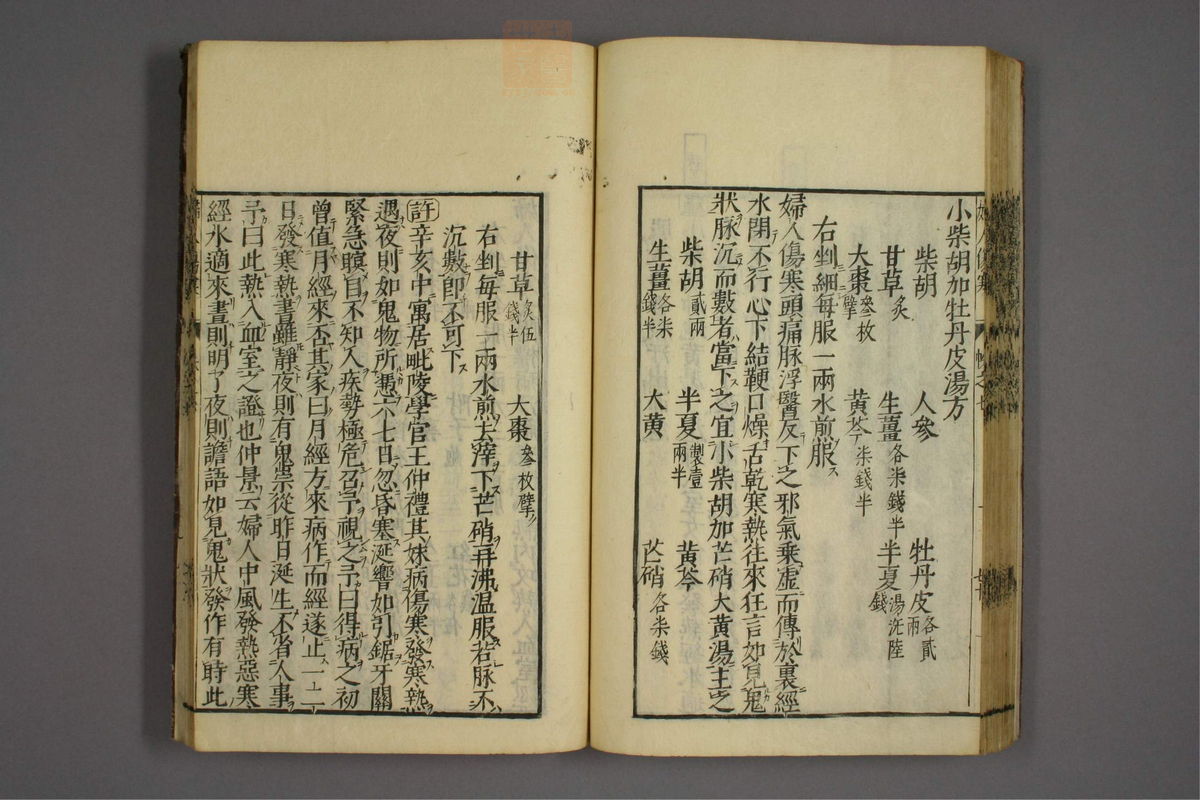 小柴胡加牡丹皮湯方
柴胡 人參 牡丹皮各貳兩
甘草炙 生薑各柒錢半 半夏湯洗陸錢
大棗參枚擘 黃芩柒錢半
右剉細每服一兩水煎服
婦人傷寒頭痛脉浮醫反下之邪氣乗虚而傳於裏經
水閉不行心下結鞕口燥舌乾寒熱往來狂言如見鬼
狀脉沉而數者當下之宜小柴胡加芒硝大黃湯主之
柴胡貳兩 半夏製壹兩半 黃芩
生薑各柒錢半 大黃 芒硝各柒錢
甘草炙伍錢半 大棗參枚擘
右剉每服一兩水煎去滓下芒硝再沸温服若脉不
沉數卽不可下
許辛亥中寓居毗陵學官王仲禮其妹病傷寒發寒熱
遇夜則如鬼物所憑六七日忽昏塞涎響如引鋸牙關
緊急瞑目不知人疾勢極危召予視之予曰得病之初
曾值月經來否其家曰月經方來病作而經遂止一二
日發寒熱晝雖靜夜則有鬼祟從昨日涎生不省人事
予曰此熱入血室之證也仲景云婦人中風發熱惡寒
經水適來晝則明了夜則譫語如見鬼狀發作有時此